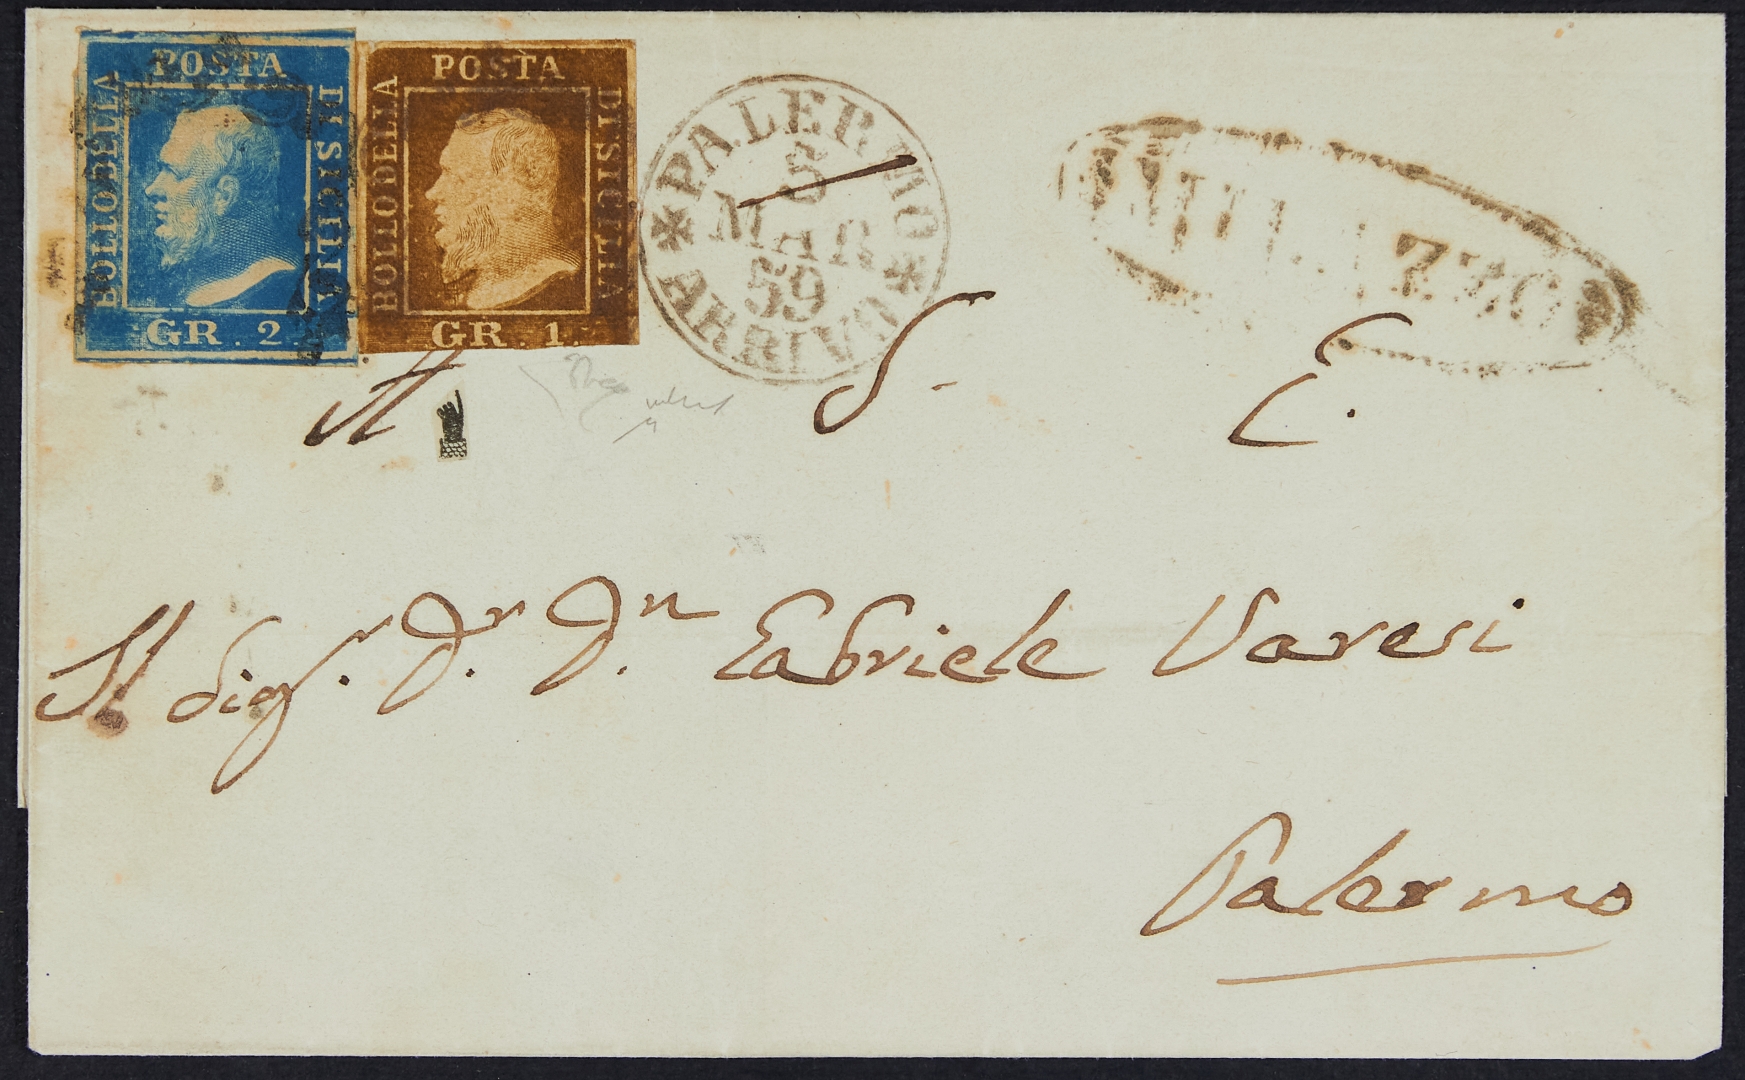 BOLLO DELLA POSTA DI SICILIA
GR. 2.
BOLLO DELLA POSTA DI SICILIA
GR. 1.
*PALERMO*
8
MAR
59
ARRIVO
A S. E.
Il Sig.r D.r D.n Gabriele Varesi
Palermo